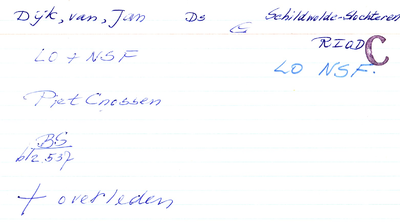 Dijk, van, Jan Ds Schildwolde-Slochteren
G
RIOD C
LO + NSF LO NSF.
Piet Cnossen
BS
blz 537
+ overleden